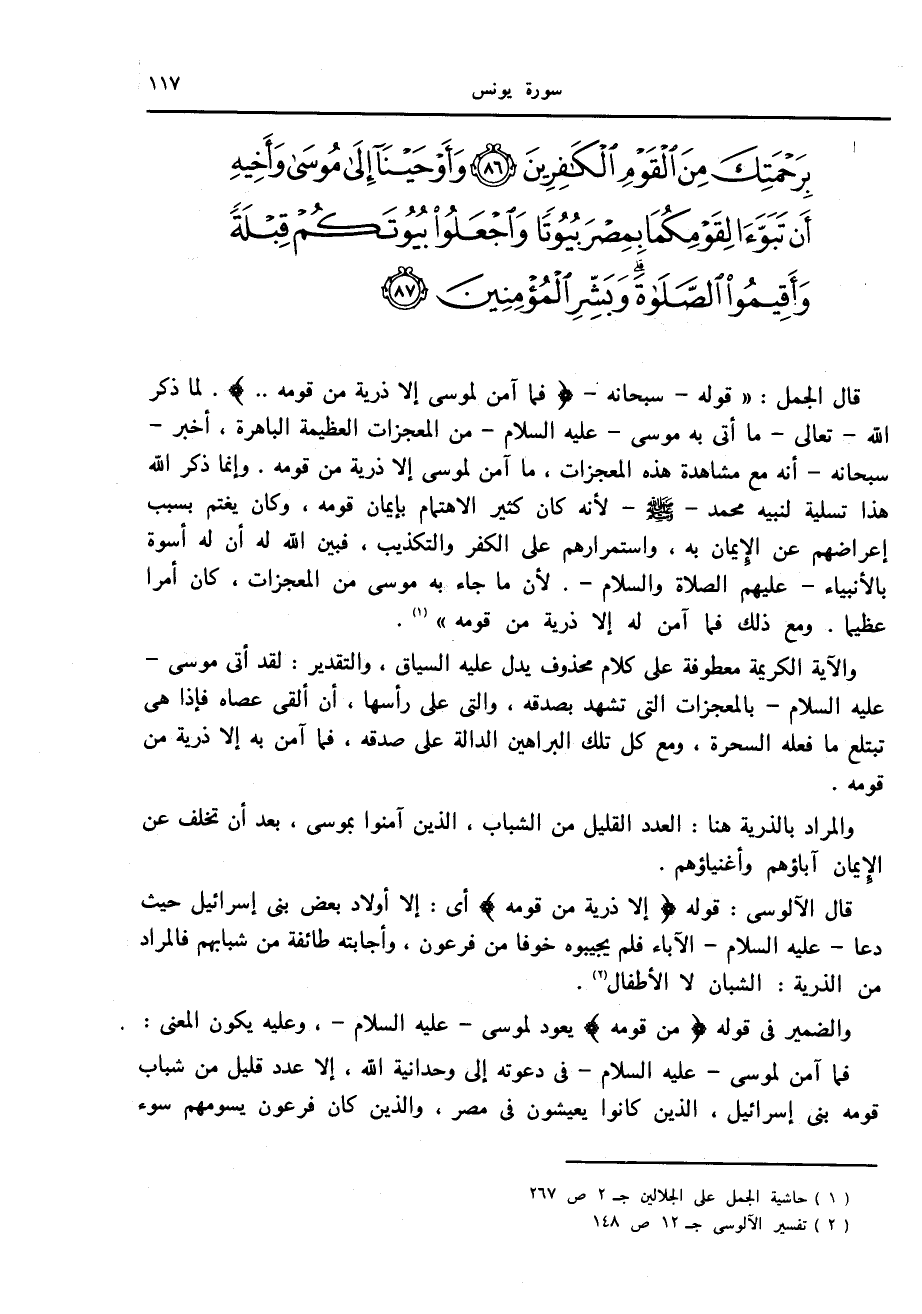 سورة يونس ١١٧
بِرَحْمَتِكَ مِنَ ٱلْقَوْمِ ٱلْكَٰفِرِينَ ٨٦ وَأَوْحَيْنَآ إِلَىٰ مُوسَىٰ وَأَخِيهِ
أَن تَبَوَّءَا لِقَوْمِكُمَا بِمِصْرَ بُيُوتًا وَٱجْعَلُوا۟ بُيُوتَكُمْ قِبْلَةً
وَأَقِيمُوا۟ ٱلصَّلَوٰةَ ۗ وَبَشِّرِ ٱلْمُؤْمِنِينَ ٨٧
قال الجمل : « قوله – سبحانه – ﴿ فما آمن لموسى إلا ذرية من قومه .. ﴾ . لما ذكر
الله – تعالى – ما أتى به موسى – عليه السلام – من المعجزات العظيمة الباهرة ، أخبر –
سبحانه – أنه مع مشاهدة هذه المعجزات ، ما آمن لموسى إلا ذرية من قومه . وإنما ذكر الله
هذا تسلية لنبيه محمد – ﷺ – لأنه كان كثير الاهتمام بإيمان قومه ، وكان يغتم بسبب
إعراضهم عن الإيمان به ، واستمرارهم على الكفر والتكذيب ، فبين الله له أن له أسوة
بالأنبياء – عليهم الصلاة والسلام – . لأن ما جاء به موسى من المعجزات ، كان أمرا
عظيما . ومع ذلك فما آمن له إلا ذرية من قومه » (١) .
والآية الكريمة معطوفة على كلام محذوف يدل عليه السياق ، والتقدير : لقد أتى موسى –
عليه السلام – بالمعجزات التى تشهد بصدقه ، والتى على رأسها ، أن ألقى عصاه فإذا هى
تبتلع ما فعله السحرة ، ومع كل تلك البراهين الدالة على صدقه ، فما آمن به إلا ذرية من
قومه .
والمراد بالذرية هنا : العدد القليل من الشباب ، الذين آمنوا بموسى ، بعد أن تخلف عن
الإيمان آباؤهم وأغنياؤهم .
قال الآلوسى : قوله ﴿ إلا ذرية من قومه ﴾ أى : إلا أولاد بعض بنى إسرائيل حيث
دعا – عليه السلام – الآباء فلم يجيبوه خوفا من فرعون ، وأجابته طائفة من شبابهم فالمراد
من الذرية : الشبان لا الأطفال(٢) .
والضمير فى قوله ﴿ من قومه ﴾ يعود لموسى – عليه السلام – ، وعليه يكون المعنى :
فما آمن لموسى – عليه السلام – فى دعوته إلى وحدانية الله ، إلا عدد قليل من شباب
قومه بنى إسرائيل ، الذين كانوا يعيشون فى مصر ، والذين كان فرعون يسومهم سوء
( ١ ) حاشية الجمل على الجلالين جـ ٢ ص ٢٦٧
( ٢ ) تفسير الآلوسى جـ ١٢ ص ١٤٨